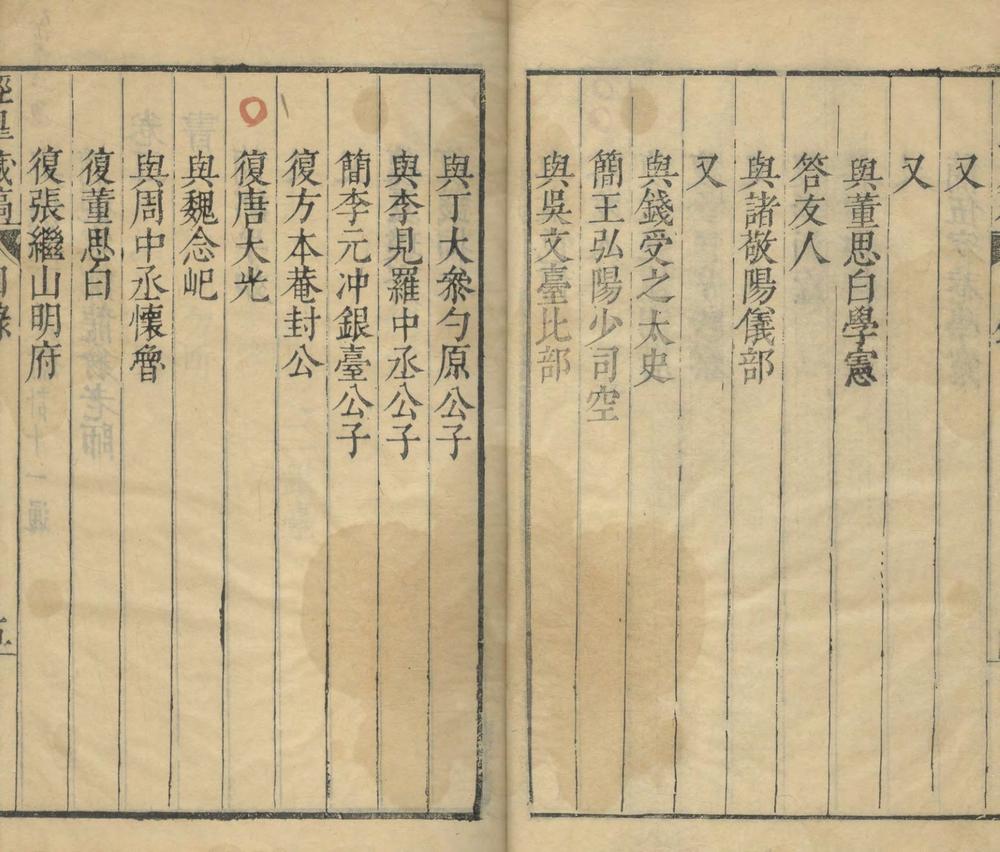 又
又
與董思白學憲
答友人
與諸敬陽儀部
又
與錢受之太史
簡王弘陽少司空
與吳文臺比部
與丁大參勺原公子
與李見羅中丞公子
簡李元冲銀臺公子
復方本菴封公
復唐大光
與魏念屺
與周中丞懷魯
復董思白
復張繼山明府
經皐藏稿
目錄
五